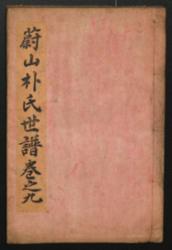 蔚山朴氏世譜卷之九